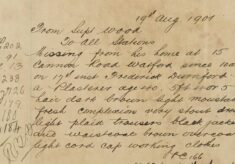 19th Aug 1901
From Supt Wood
To all Stations
Missing from his home at 15
Cannon Road Watford since 10am
on 17th inst Frederick Durnford
a Plasterer age 40, 5ft 8 or 9
hair dark brown light moustache
fresh complexion very stout dress
light plaid trousers black jacket
and waistcoat brown overcoat
light cord cap working clothes
PC 166
202
91
13
238
7726
149
188
187